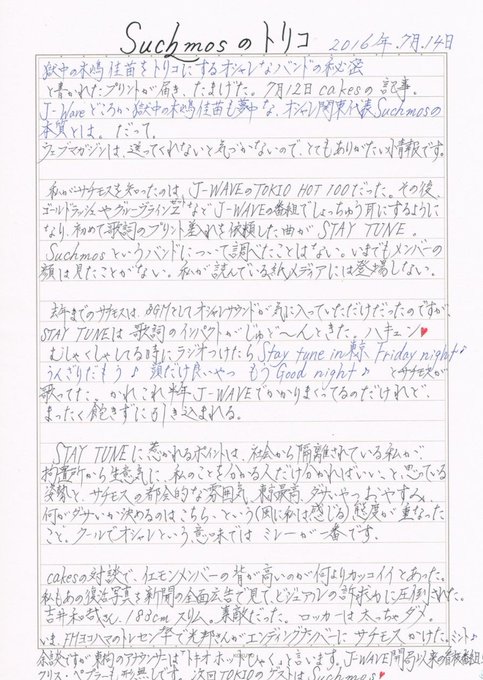 Suchmosのトリコ 2016年.7月.14日
獄中の木嶋佳苗をトリコにするオシャレなバンドの秘密
と書かれたプリントが届き、たまげた。7月12日cakesの記事。
J-Waveどころか獄中の木嶋佳苗も夢中な、オシャレ関東代表Suchmosの
本質とは。だって。
ウェブマガジンは、送ってくれないと気づかないので、とてもありがたい情報です。
私がサチモスを知ったのは、J-WAVEのTOKIO HOT 100だった。その後、
ゴールドラッシュやグルーヴラインZなどJ-WAVEの番組でしょっちゅう耳にするように
なり、初めて歌詞のプリント差入れを依頼した曲がSTAY TUNE。
Suchmosというバンドについて調べたことはない。いまでもメンバーの
顔は見たことがない。私が読んでいる紙メディアには登場しない。
去年までのサチモスは、BGMとしてオシャレサウンドが気に入っていただけだったのですが、
STAY TUNEは歌詞のインパクトがじゅど〜んときた。ハキュン♥
むしゃくしゃしてる時にラジオつけたら Stay tune in 東京 Friday night♪
うんざりだもう♪ 頭だけ良いやつ もう Good night♪ とサチモスが
歌ってた。かれこれ半年、J-WAVEでかかりまくってるのだけれど、
まったく飽きずに引き込まれる。
STAY TUNEに惹かれるポイントは、社会から隔離されている私が、
拘置所から生意気に、私のことを分かる人だけ分かればいい、と思っている
姿勢と、サチモスの都会的な雰囲気、東京最高、ダサいやつおやすみ、
何がダサいか決めるのはこちら、という(風に私は感じる)態度が重なった
こと。クールでオシャレという意味ではミレーが一番です。
cakesの対談で、イエモンメンバーの背が高いのが何よりカッコイイとあった。
私もあの復活写真を新聞の全面広告で見て、ビジュアルの訴求力に圧倒された。
吉井和哉さん、183cmスリム。素敵だった。ロッカーは太っちゃダメ。
いま、FMヨコハマのトレセン卒で光邦さんがエンディングナンバーにサチモスかけた。ミント♪
余談ですが東拘のアナウンサーは「トキオホットひゃく」と言います。J-WAVE開局以来の看板番組
クリス・ペプラーも形無しです。次回TOKIOのゲストはSuchmos♥